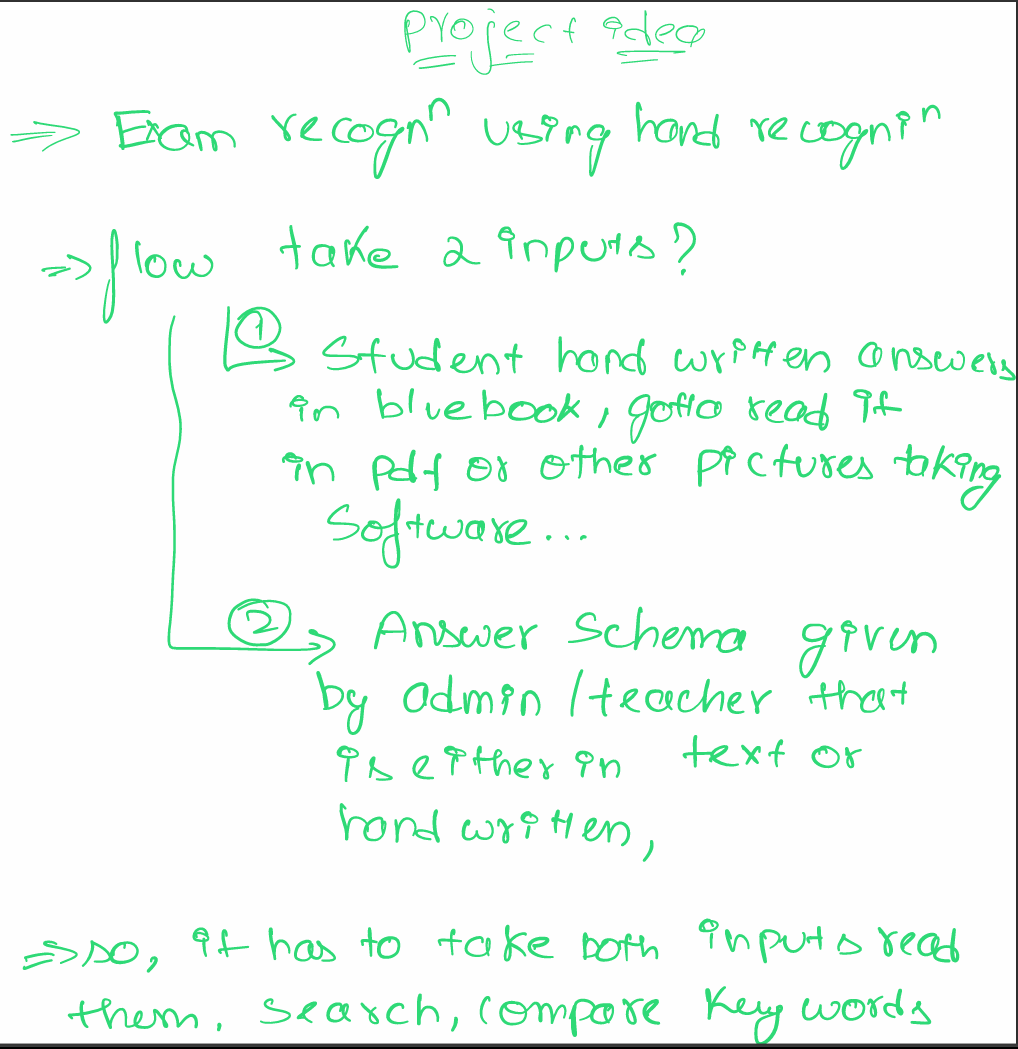 Project idea
⇒ Exam recogn^n using hand recogni^n
⇒ flow take 2 inputs?
① Student hand written answers
in bluebook, gotta read it
in pdf or other pictures taking
Software...
② Answer Schema given
by admin / teacher that
is either in text or
hand written,
⇒ so, it has to take both inputs read
them, search, compare key words